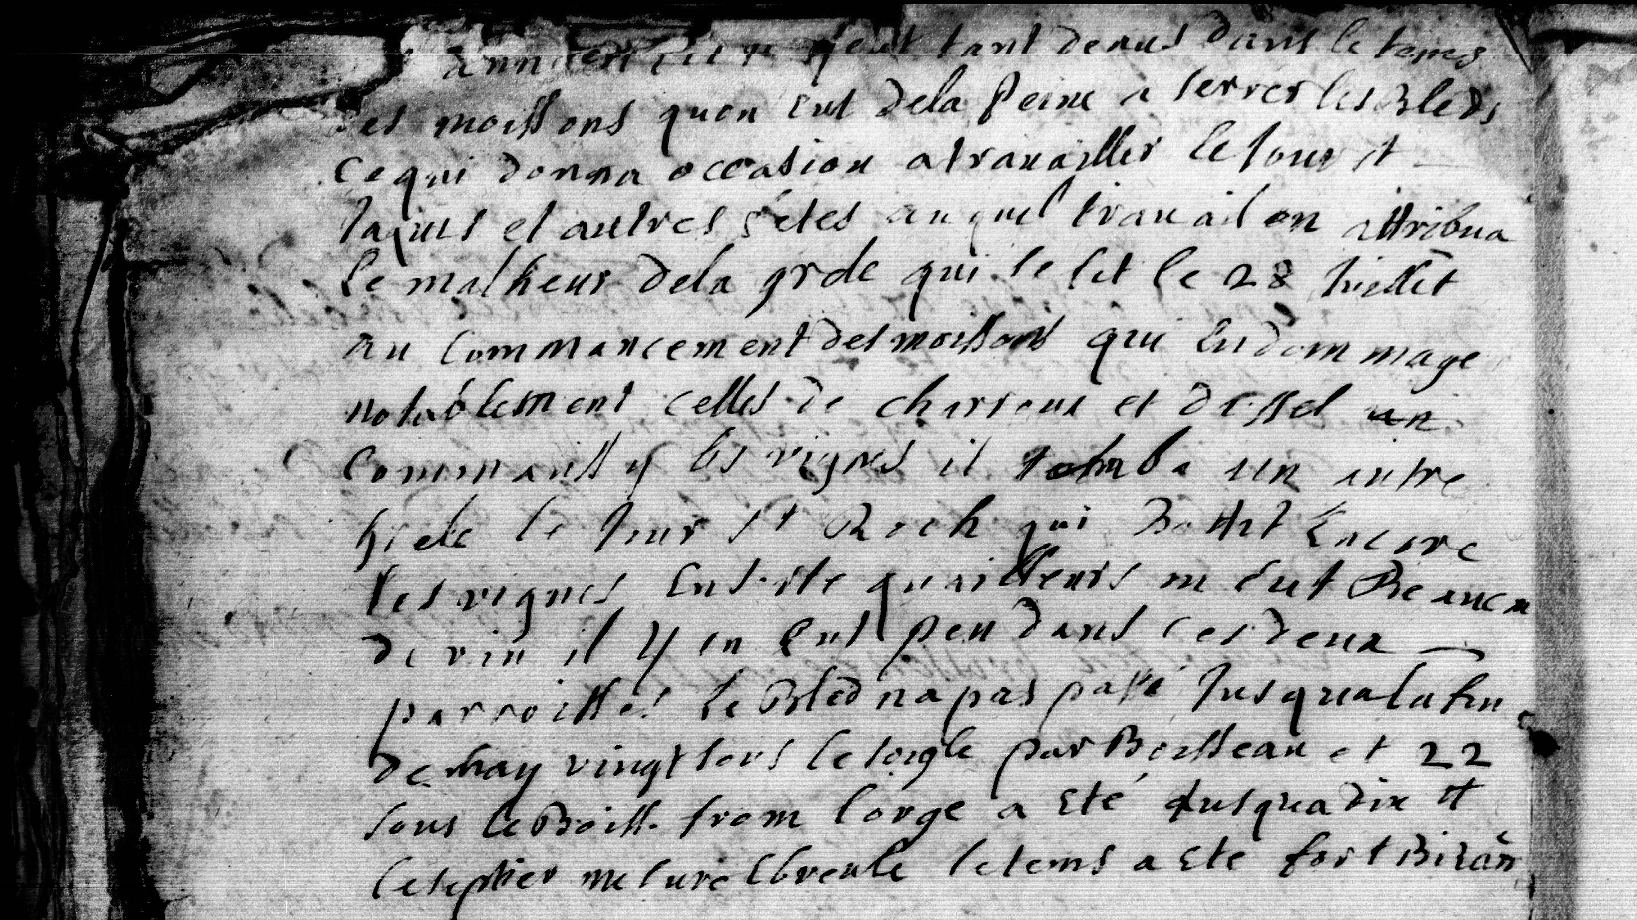 tant deaus dans le temps
des moissons quon eut dela peine a serrer les Bleds
ce qui donna occasion a trauailler le Jour st
Jaques et autres fetes auquel trauail on attribua
le malheur dela grele qui se fit le 28 Juillet
au Commancement des moissons qui Endommage
notablement celles de et un
les vignes il tomba un autre
grele le Jour st Roch qui Battit Encore
les vignes Ensorte quailleurs on eut Beaucou
de vin il y en eut peu dans ces deux
parroisses le Bled na pas passé Jusqualafin
de may vingt sous le seigle par Boisseau et 22
sous le Boiss. from lorge a eté Jusqua dix tt
le septier mesure le tems a eté fort